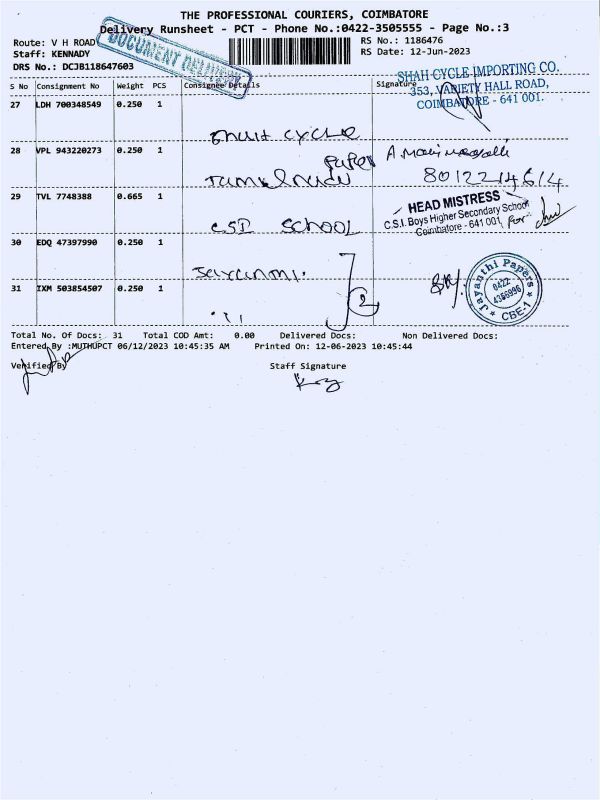 THE PROFESSIONAL COURIERS, COIMBATORE
Delivery Runsheet - PCT - Phone No.:0422-3505555 - Page No.:3
Route: V H ROAD
RS No.: 1186476
Staff: KENNADY
RS Date: 12-Jun-2023
DRS No.: DCJB118647603
DOCUMENT DELIVERY
S No Consignment No Weight PCS Consignee Details Signature
SHAH CYCLE IMPORTING CO.
353, VARIETY HALL ROAD,
COIMBATORE - 641 001.
27 LDH 700348549 0.250 1
CYCLE
28 VPL 943220273 0.250 1
Tamilnadu Paper
8012214614
29 TVL 7748388 0.665 1
CSI SCHOOL
HEAD MISTRESS
C.S.I. Boys Higher Secondary School
Coimbatore - 641 001. For
30 EDQ 47397990 0.250 1
31 IXM 503854507 0.250 1
2
Jayanthi Papers
0422-
4366996
★ CBE-1 ★
Total No. Of Docs: 31 Total COD Amt: 0.00 Delivered Docs: Non Delivered Docs:
Entered By :MUTHUPCT 06/12/2023 10:45:35 AM Printed On: 12-06-2023 10:45:44
Verified By Staff Signature